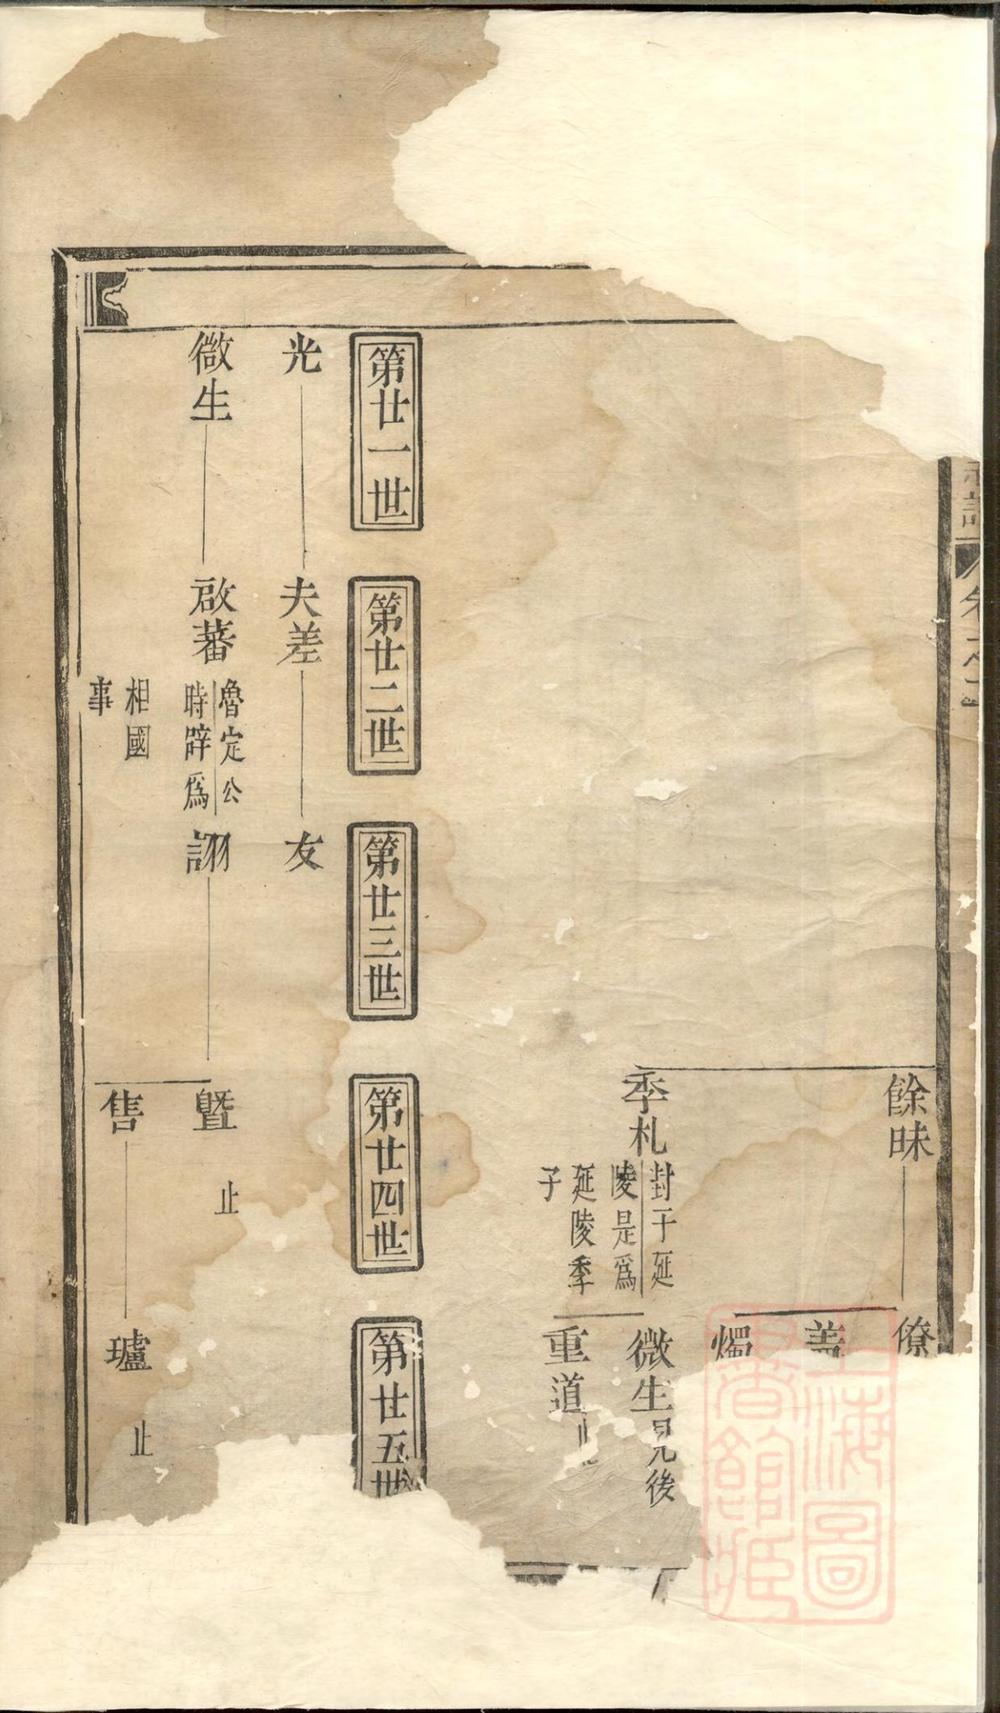 餘昧
僚
盖
燭
季札
封于延
陵是爲
延陵季
子
微生
見後
重道
第廿一世
第廿二世
第廿三世
第廿四世
第廿五世
光
夫差
友
微生
啟蕃
魯定公
時辭爲
相國
事
詡
暨
止
售
瓐
止
上海圖
書館藏